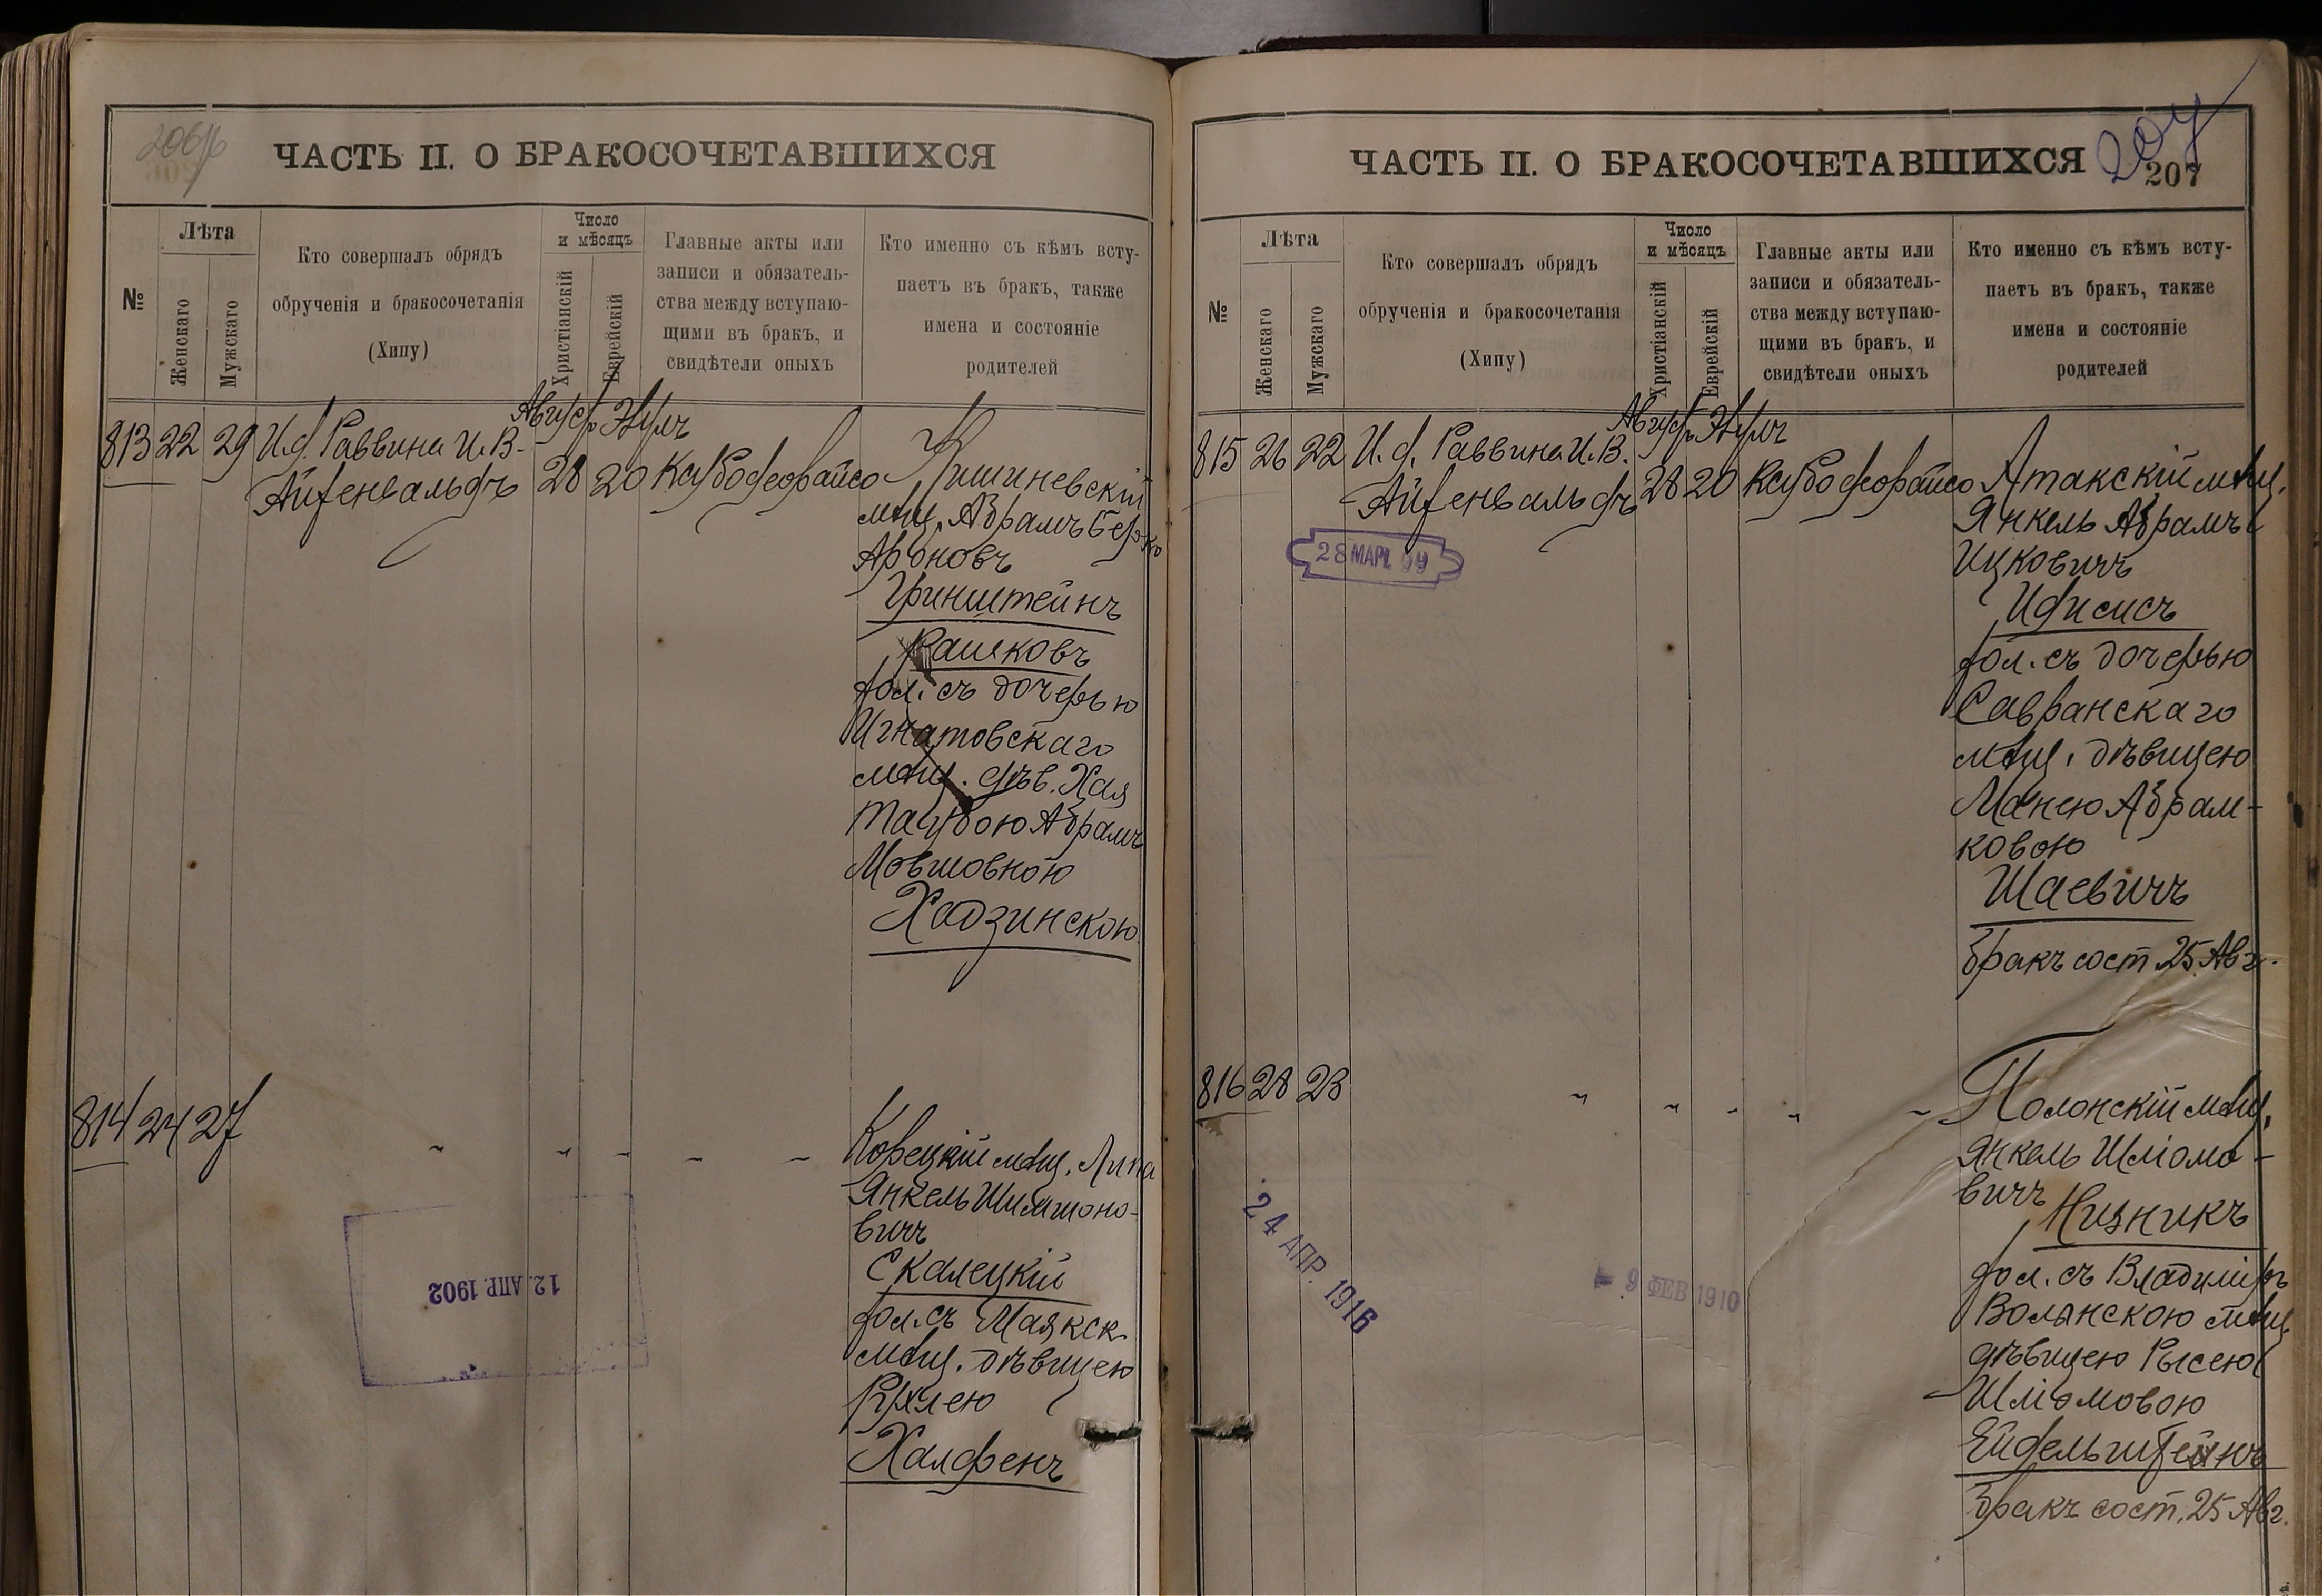 206
ЧАСТЬ II. О БРАКОСОЧЕТАВШИХСЯ
№
Лѣта
Женскаго
Мужскаго
Кто совершалъ обрядъ
обрученія и бракосочетанія
(Хипу)
Число
и мѣсяцъ
Христіанскій
Еврейскій
Главные акты или
записи и обязатель-
ства между вступаю-
щими въ бракъ, и
свидѣтели оныхъ
Кто именно съ кѣмъ всту-
паетъ въ бракъ, также
имена и состояніе
родителей
Август Элулъ
813 22 29 И. д. Раввина И. В.
Айзенвальдъ 28 20
Кишиневскій
мѣщ. Абрамъ Берко
Ароновъ
Гринштейнъ
Рашковъ
хол. съ дочерью
Игнатовскаго
мѣщ. дѣв. Хая
Таубою Абрамъ
Мовшовною
Хадзинскою
814 24 27 " " " " "
Корецкій мѣщ. Липа
Янкель Шимшоно-
вичъ
Скалецкій
хол. съ Маякск
мѣщ. дѣвицею
Рухлею
Халфенъ
12. АПР. 1902
ЧАСТЬ II. О БРАКОСОЧЕТАВШИХСЯ
207
207
№
Лѣта
Женскаго
Мужскаго
Кто совершалъ обрядъ
обрученія и бракосочетанія
(Хипу)
Число
и мѣсяцъ
Христіанскій
Еврейскій
Главные акты или
записи и обязатель-
ства между вступаю-
щими въ бракъ, и
свидѣтели оныхъ
Кто именно съ кѣмъ всту-
паетъ въ бракъ, также
имена и состояніе
родителей
Август Элулъ
815 26 22 И. д. Раввина И. В.
Айзенвальдъ 28 20
28 МАР. 99
Атакскій мѣщ.
Янкель Абрамъ
Ицковичъ
хол. съ дочерью
Савранскаго
мѣщ. дѣвицею
Манею Абрам-
ковою
Шаевичъ
Бракъ сост. 25 Авг.
816 28 23 " " " " "
Полонскій мѣщ.
Янкель Шліомо-
вичъ
Низникъ
хол. съ Владимір
Волынскою мѣщ.
дѣвицею Рысею
Шліомовою
Ейдельштейнъ
Бракъ сост. 25 Авг.
24 АПР. 1916
9 ФЕВ 1910